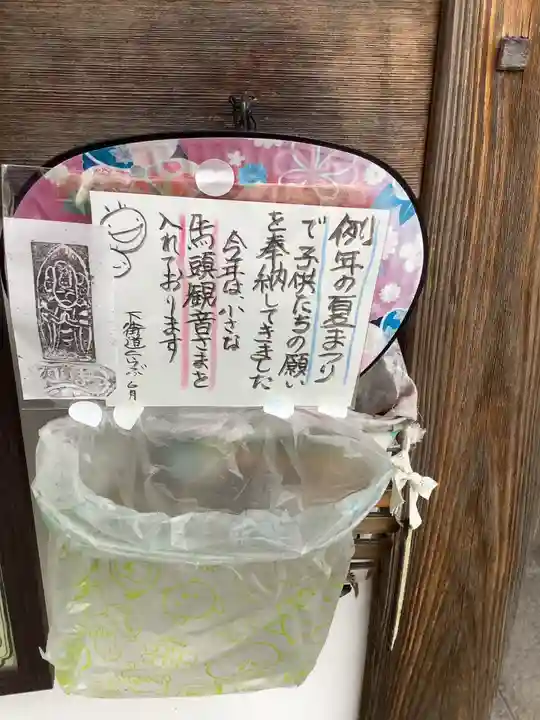 例年の夏まつり
で子供たちの願い
を奉納してきました
今年は、小さな
馬頭観音さまを
入れております